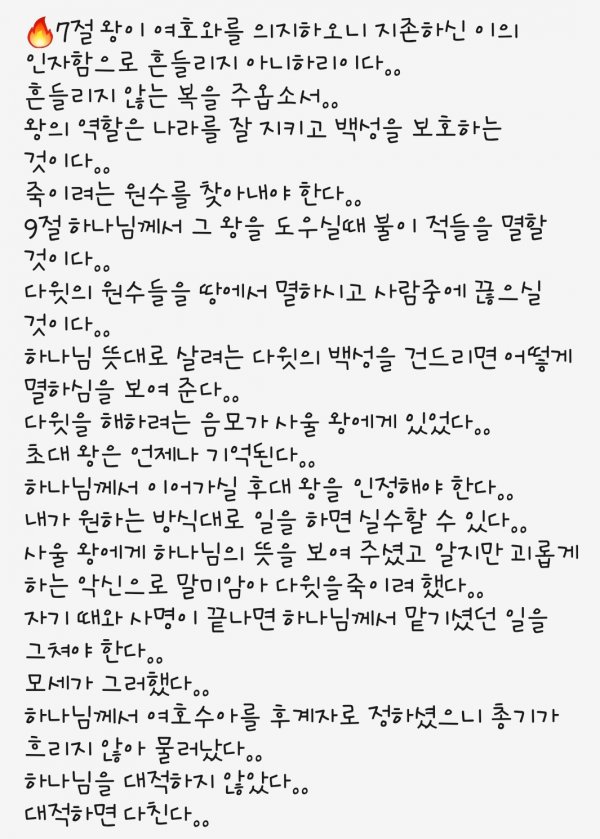 🔥7절 왕이 여호와를 의지하오니 지존하신 이의
인자함으로 흔들리지 아니하리이다。。
흔들리지 않는 복을 주옵소서。。
왕의 역할은 나라를 잘 지키고 백성을 보호하는
것이다。。
죽이려는 원수를 찾아내야 한다。。
9절 하나님께서 그 왕을 도우실때 불이 적들을 멸할
것이다。。
다윗의 원수들을 땅에서 멸하시고 사람중에 끊으실
것이다。。
하나님 뜻대로 살려는 다윗의 백성을 건드리면 어떻게
멸하심을 보여 준다。。
다윗을 해하려는 음모가 사울 왕에게 있었다。。
초대 왕은 언제나 기억된다。。
하나님께서 이어가실 후대 왕을 인정해야 한다。。
내가 원하는 방식대로 일을 하면 실수할 수 있다。。
사울 왕에게 하나님의 뜻을 보여 주셨고 알지만 괴롭게
하는 악신으로 말미암아 다윗을죽이려 했다。。
자기 때와 사명이 끝나면 하나님께서 맡기셨던 일을
그쳐야 한다。。
모세가 그러했다。。
하나님께서 여호수아를 후계자로 정하셨으니 총기가
흐리지 않아 물러났다。。
하나님을 대적하지 않았다。。
대적하면 다친다。。